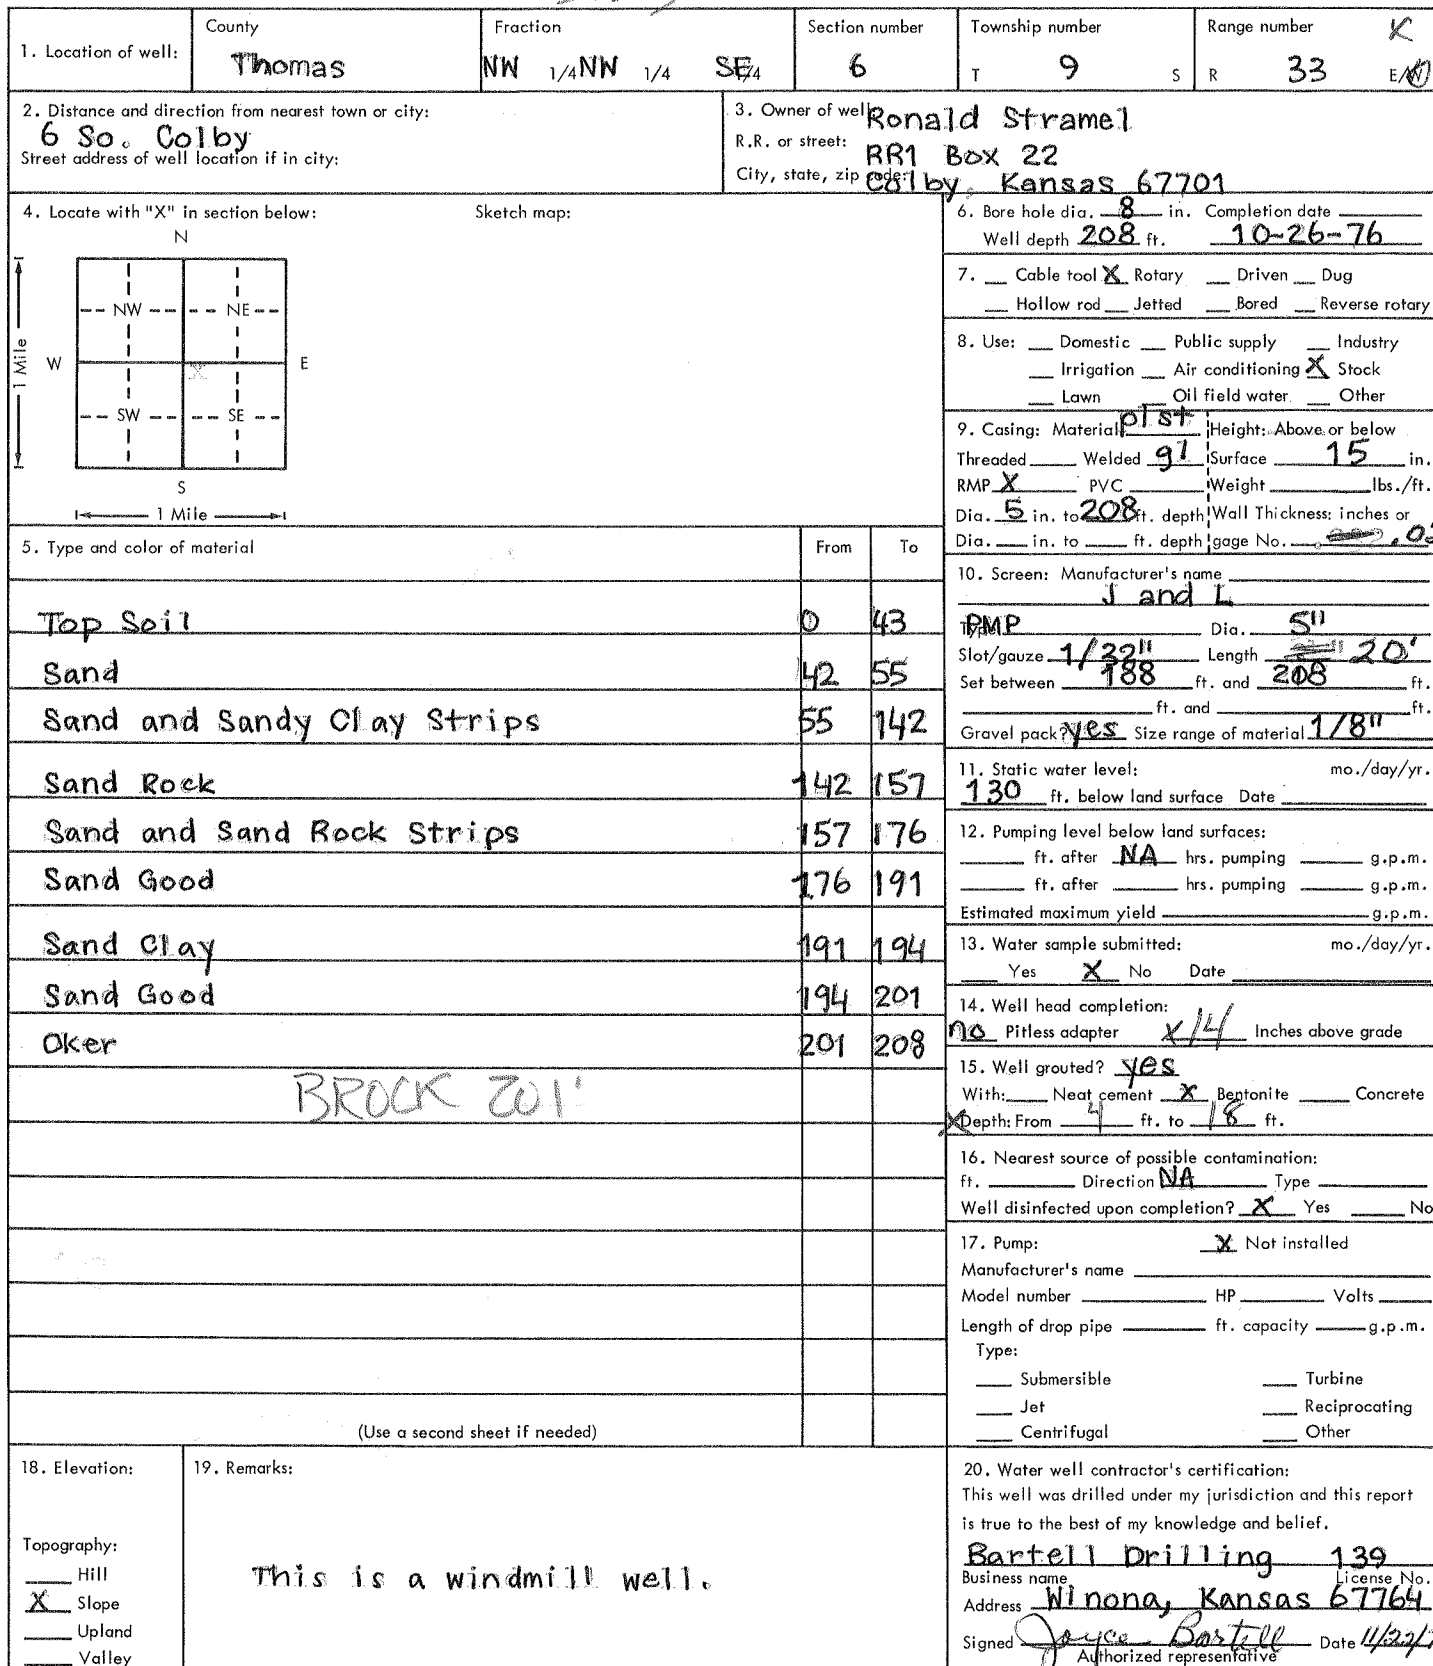 1. Location of well: County Thomas Fraction NW 1/4 NW 1/4 SE 1/4 Section number 6 Township number T 9 S Range number R 33 E/W
2. Distance and direction from nearest town or city:
6 So. Colby
Street address of well location if in city:
3. Owner of well: Ronald Stramel
R.R. or street: RR1 Box 22
City, state, zip code: Colby, Kansas 67701
4. Locate with "X" in section below: Sketch map:
N
NW NE
W X E
SW SE
S
1 Mile
1 Mile
5. Type and color of material From To
Top Soil 0 43
Sand 42 55
Sand and Sandy Clay Strips 55 142
Sand Rock 142 157
Sand and Sand Rock Strips 157 176
Sand Good 176 191
Sand Clay 191 194
Sand Good 194 201
Oker 201 208
BROCK 201'
(Use a second sheet if needed)
6. Bore hole dia. 8 in. Completion date
Well depth 208 ft. 10-26-76
7. Cable tool X Rotary Driven Dug
Hollow rod Jetted Bored Reverse rotary
8. Use: Domestic Public supply Industry
Irrigation Air conditioning X Stock
Lawn Oil field water Other
9. Casing: Material plst Height: Above or below
Threaded Welded gl Surface 15 in.
RMP X PVC Weight lbs./ft.
Dia. 5 in. to 208 ft. depth Wall Thickness: inches or
Dia. in. to ft. depth gage No.
10. Screen: Manufacturer's name
J and L
Type RMP Dia. 5"
Slot/gauze 1/32" Length 20'
Set between 188 ft. and 208 ft.
ft. and ft.
Gravel pack? yes Size range of material 1/8"
11. Static water level: mo./day/yr.
130 ft. below land surface Date
12. Pumping level below land surfaces:
ft. after NA hrs. pumping g.p.m.
ft. after hrs. pumping g.p.m.
Estimated maximum yield g.p.m.
13. Water sample submitted: mo./day/yr.
Yes X No Date
14. Well head completion:
no Pitless adapter x 14 Inches above grade
15. Well grouted? yes
With: Neat cement X Bentonite Concrete
X Depth: From 4 ft. to 18 ft.
16. Nearest source of possible contamination:
ft. Direction NA Type
Well disinfected upon completion? X Yes No
17. Pump: X Not installed
Manufacturer's name
Model number HP Volts
Length of drop pipe ft. capacity g.p.m.
Type:
Submersible Turbine
Jet Reciprocating
Centrifugal Other
18. Elevation:
Topography:
Hill
X Slope
Upland
Valley
19. Remarks:
This is a windmill well.
20. Water well contractor's certification:
This well was drilled under my jurisdiction and this report
is true to the best of my knowledge and belief.
Bartell Drilling 139
Business name License No.
Address Winona, Kansas 67764
Signed Joyce Bartell Date 11/22/
Authorized representative